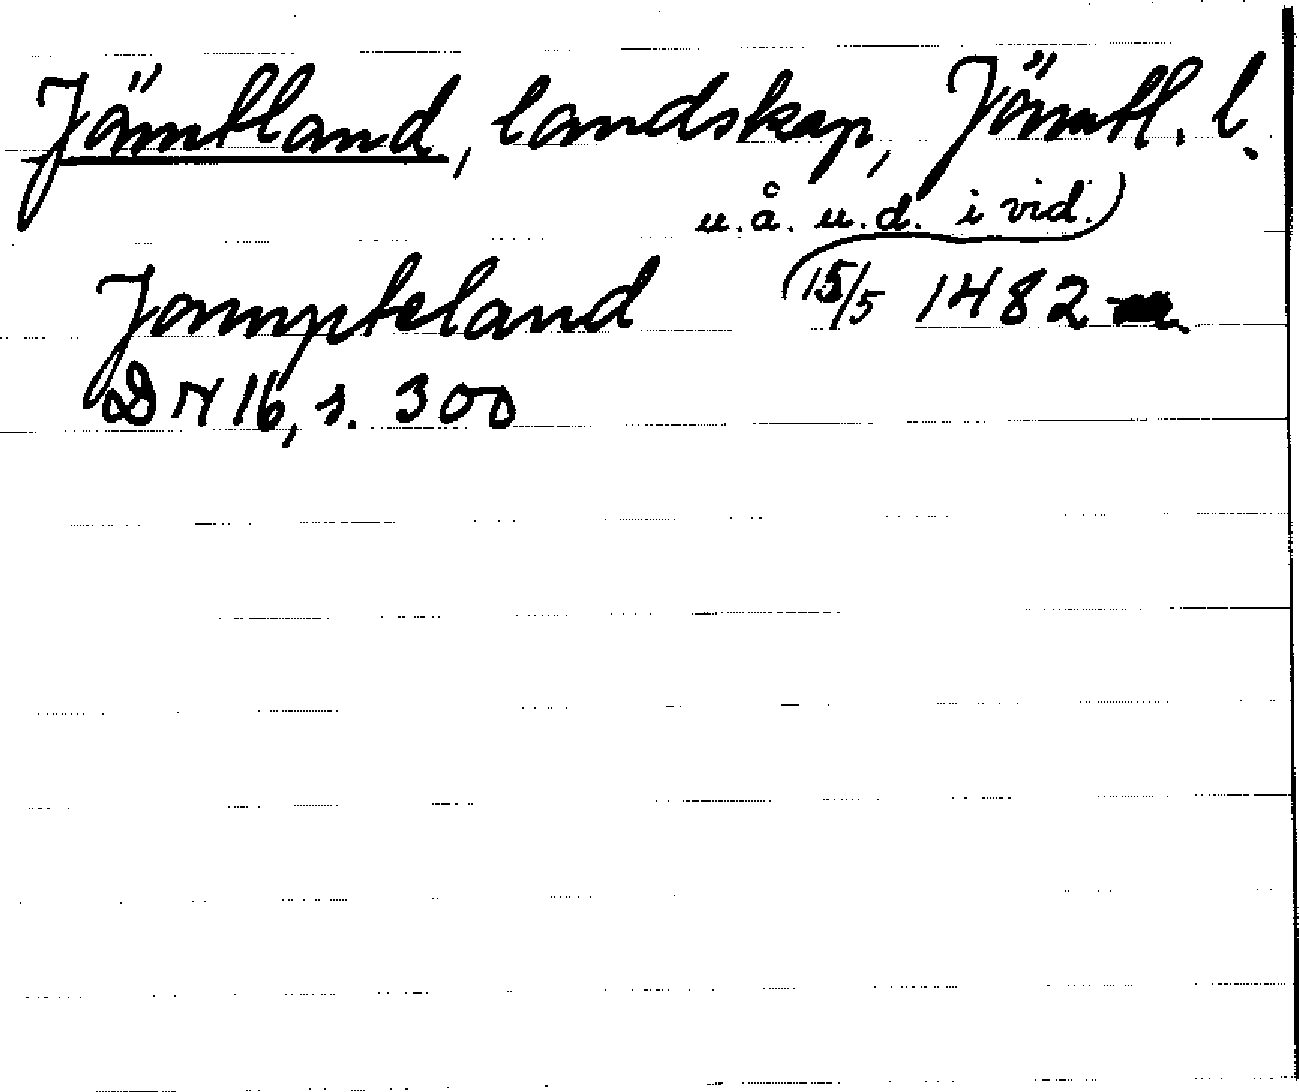 Jämtland, landskap, Jämtl. l.
u.å. u.d. i vid.)
Jampteland (15/5 1482
DN 16, s. 300